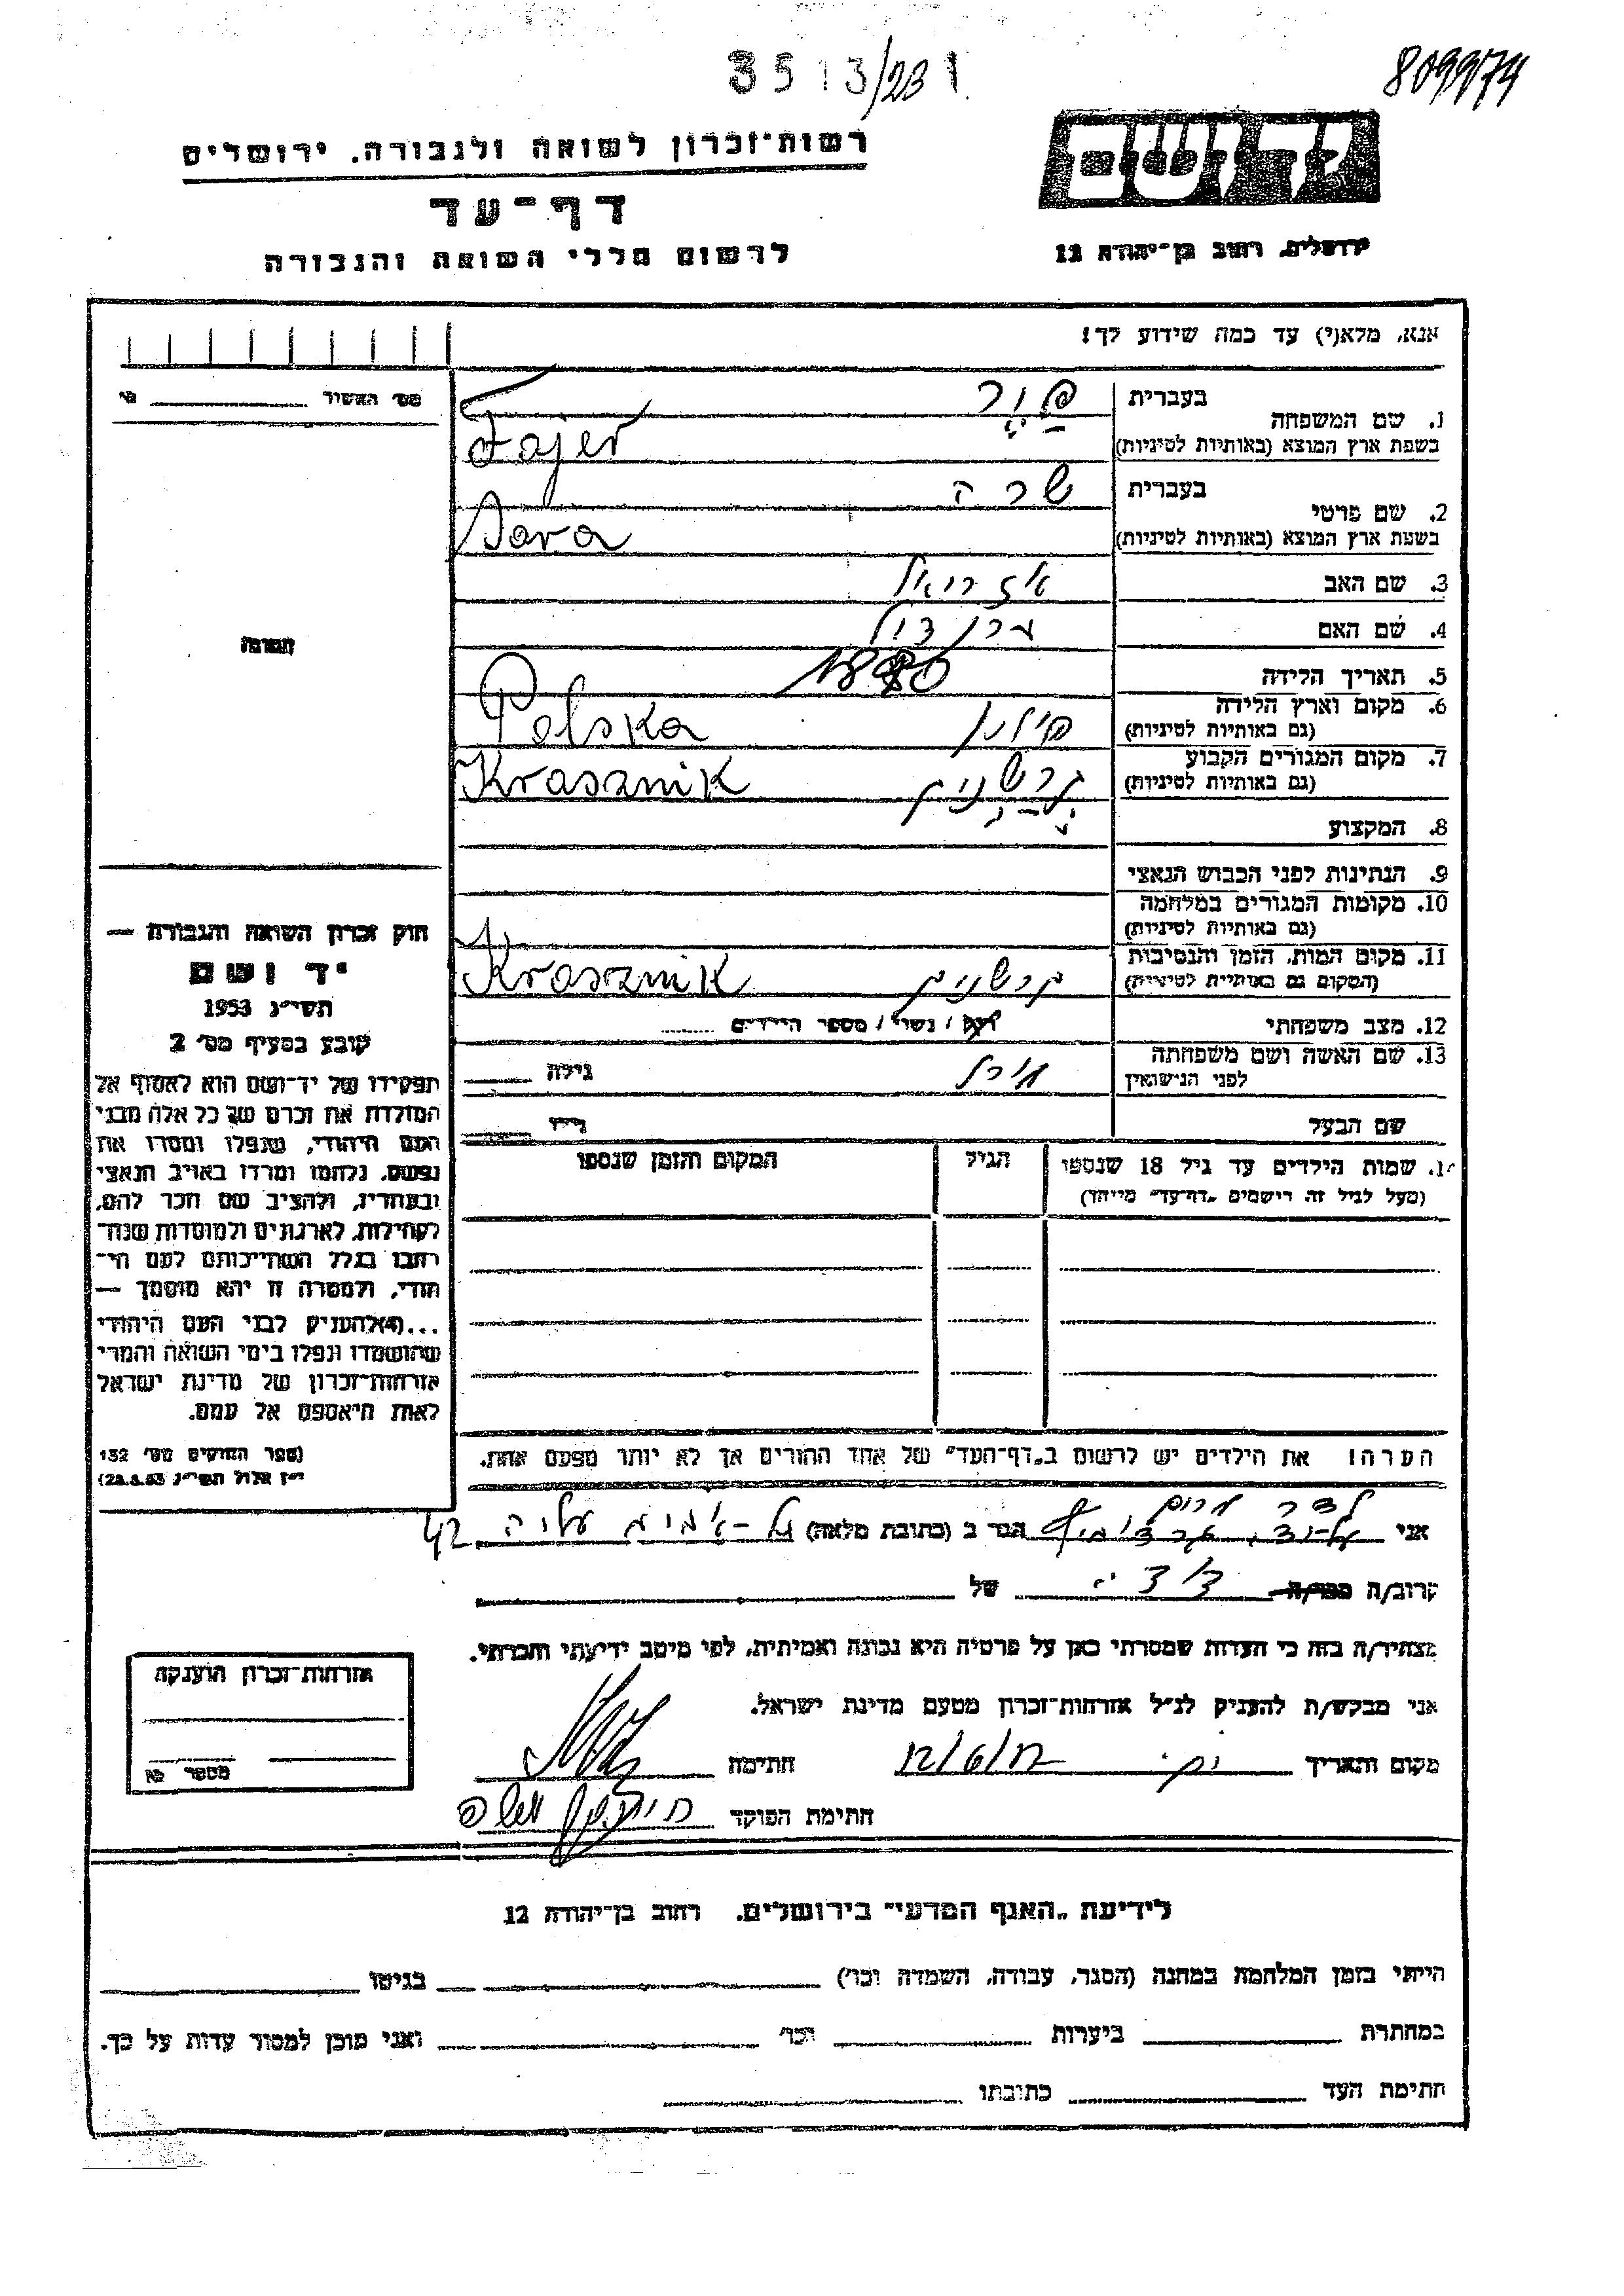 3513/231
8099/74
רשות־זכרון לשואה ולגבורה, ירושלים
דף־עד
לרשום חללי השואה והגבורה
יד ושם
ירושלים, רחוב בן־יהודה 12
אנא, מלא(י) עד כמה שידוע לך!
מס׳ האשיר
1. שם המשפחה
בעברית פייר
בשפת ארץ המוצא (באותיות לטיניות) Fajer
2. שם פרטי
בעברית שרה
בשפת ארץ המוצא (באותיות לטיניות) Sara
3. שם האב עזריאל
4. שם האם
5. תאריך הלידה
6. מקום וארץ הלידה
(גם באותיות לטיניות) פולין Polska
7. מקום המגורים הקבוע
(גם באותיות לטיניות) קרשניק Krasznik
8. המקצוע
9. הנתינות לפני הכבוש הנאצי
10. מקומות המגורים במלחמה
(גם באותיות לטיניות)
11. מקום המות, הזמן והנסיבות
(המקום גם באותיות לטיניות) קרשניק Krasznik
12. מצב משפחתי רוק / נשוי / מספר הילדים
13. שם האשה ושם משפחתה
לפני הנישואין גילה
שם הבעל גילו
14. שמות הילדים עד גיל 18 שנספו
(מעל לגיל זה רישמים „דף־עד״ מיוחד)
הגיל
המקום והזמן שנספו
הערה! את הילדים יש לרשום ב„דף־העד״ של אחד ההורים אך לא יותר מפעם אחת.
תמונה
חוק זכרון השואה והגבורה —
יד ושם
תשי״ג 1953
קובע בסעיף מס׳ 2
תפקידו של יד־ושם הוא לאסוף אל
המולדת את זכרם של כל אלה מבני
העם היהודי, שנפלו ומסרו את
נפשם, נלחמו ומרדו באויב הנאצי
ובעוזריו, ולהציב שם וזכר להם,
לקהילות, לארגונים ולמוסדות שנח־
רבו בגלל השתייכותם לעם הי־
הודי, ולמטרה זו יהא מוסמך —
...(4)להעניק לבני העם היהודי
שהושמדו ונפלו בימי השואה והמרי
אזרחות־זכרון של מדינת ישראל
לאות היאספם אל עמם.
(ספר החוקים מס׳ 132
י״ז אלול תשי״ג 28.8.53)
אני הגר ב (כתובת מלאה) עליה 42
קרוב/ה מכר/ה דודה של
מצהיר/ה בזה כי העדות שמסרתי כאן על פרטיה היא נכונה ואמיתית, לפי מיטב ידיעתי והכרתי.
אני מבקש/ת להעניק לנ״ל אזרחות־זכרון מטעם מדינת ישראל.
מקום ותאריך חתימה
חתימת הפוקד
אזרחות־זכרון הוענקה
מספר
לידיעת „האגף המדעי״ בירושלים, רחוב בן־יהודה 12
הייתי בזמן המלחמה במחנה (הסגר, עבודה, השמדה וכו׳) בגיטו
במחתרת ביערות וכו׳ ואני מוכן למסור עדות על כך.
חתימת העד כתובתו